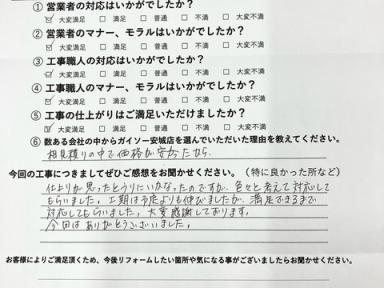 ① 営業者の対応はいかがでしたか？
☑ 大変満足 □ 満足 □ 普通 □ 不満 □ 大変不満
② 営業者のマナー、モラルはいかがでしたか？
☑ 大変満足 □ 満足 □ 普通 □ 不満 □ 大変不満
③ 工事職人の対応はいかがでしたか？
☑ 大変満足 □ 満足 □ 普通 □ 不満 □ 大変不満
④ 工事職人のマナー、モラルはいかがでしたか？
☑ 大変満足 □ 満足 □ 普通 □ 不満 □ 大変不満
⑤ 工事の仕上がりはご満足いただけましたか？
☑ 大変満足 □ 満足 □ 普通 □ 不満 □ 大変不満
⑥ 数ある会社の中からガイソー安城店を選んでいただいた理由を教えてください。
相見積りの中で価格が安かったから
今回の工事につきましてぜひご感想をお聞かせください。（特に良かった所など）
仕上りが思ったとうりにいかなったのですが、色々と考えて対応して
もらいました。工期は予定よりも伸びましたが、満足できるまで
対応してもらいました。大変感謝しております。
今回はありがとうございました。
お客様によりご満足頂くため、今後リフォームしたい箇所や気になる事がございましたらお聞かせください。